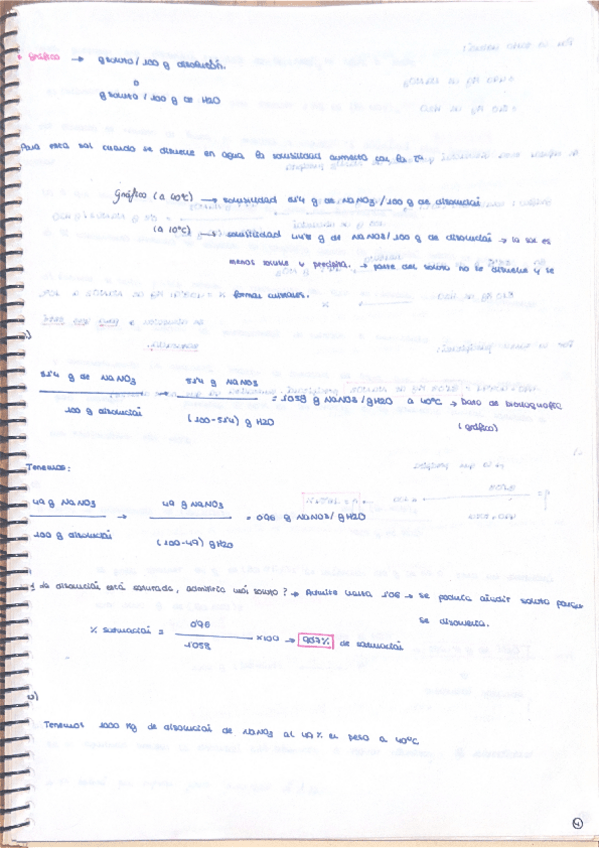 • Gráfico → g soluto / 100 g disolución.
o
g soluto / 100 g de H2O
Para esta sal cuando se disuelve en agua la solubilidad aumenta con la Tª
Gráfico (a 40ºC) → solubilidad 51'4 g de NaNO3 / 100 g de disolución
(a 10ºC) → solubilidad g de NaNO3 / 100 g de disolución → la sal es
menos soluble y precipita. → parte del soluto no se disuelve y se
forman cristales.
a)
51'4 g de NaNO3 → 51'4 g NaNO3 = 1'058 g NaNO3 / g H2O a 40ºC → dato de
100 g disolución (100-51'4) g H2O (gráfico)
Tenemos:
49 g NaNO3 → 49 g NaNO3 = 0'96 g NaNO3 / g H2O
100 g disolución (100-49) g H2O
¿ la disolución está saturada, admitiría más soluto? → Admite hasta 1'06 → se podría añadir soluto porque
se disolvería.
% saturación = 0'96 / 1'058 × 100 → 90'7% de saturación
b)
Tenemos 1000 Kg de disolución de NaNO3 al 49% en peso a 40ºC
4